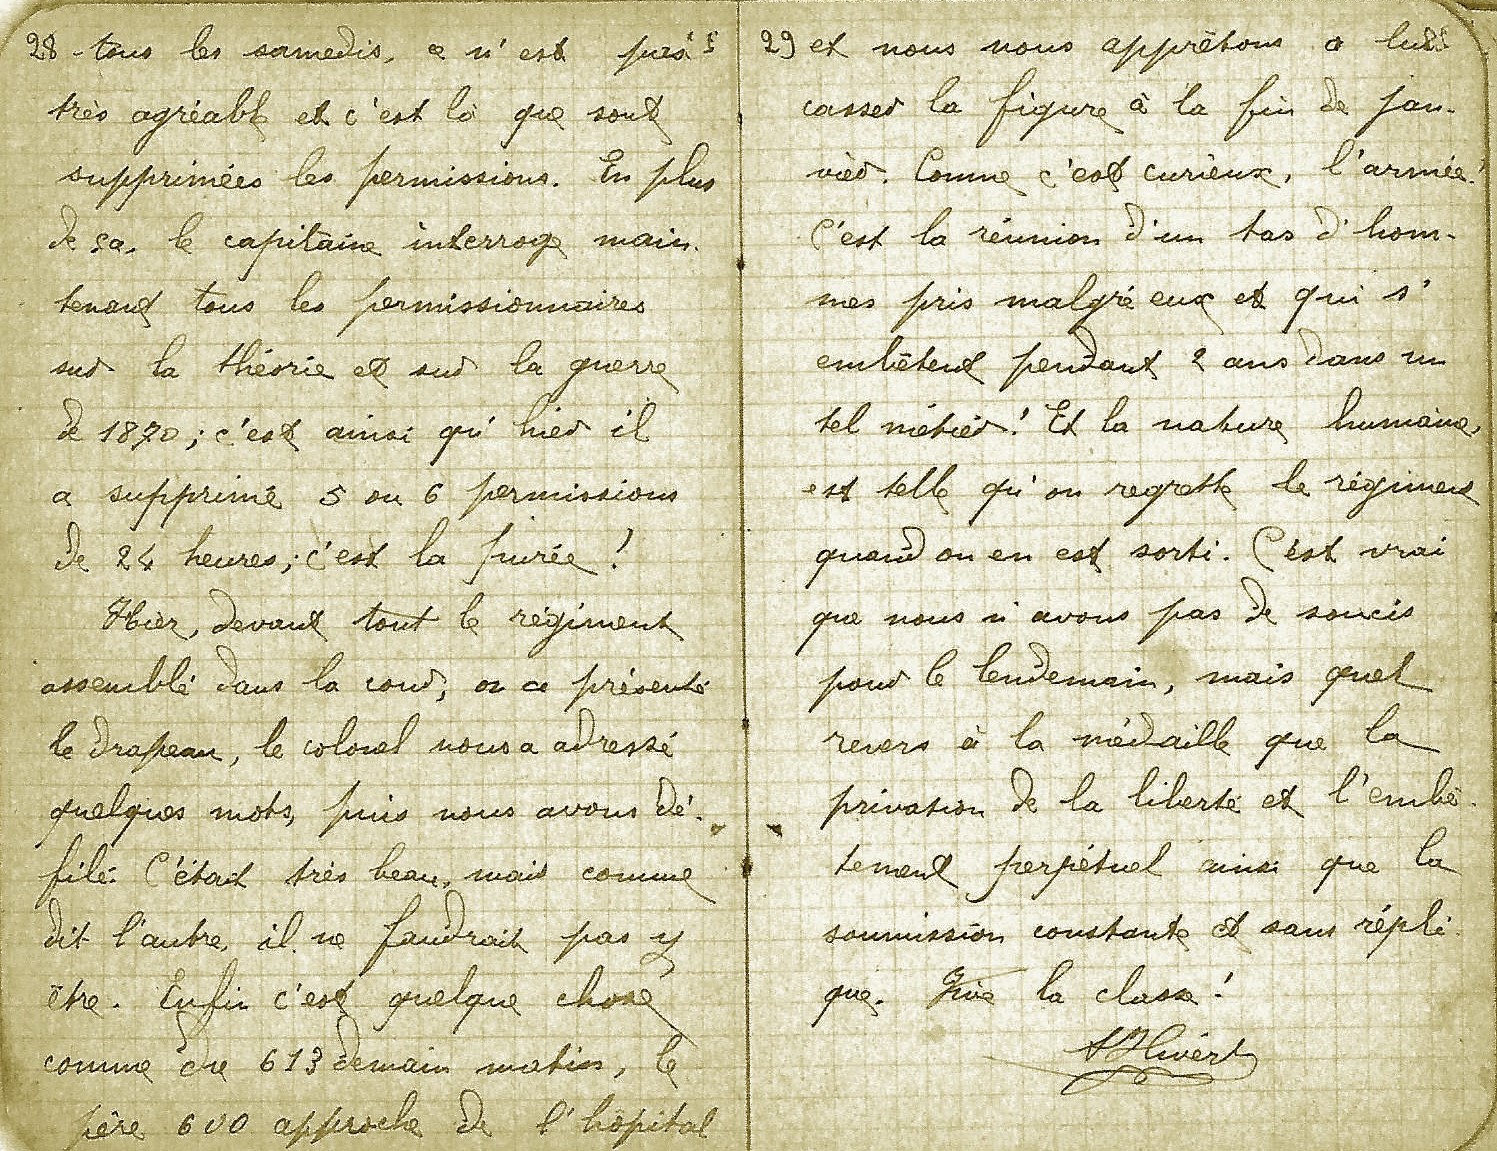 28 tous les samedis, ce n'est pas
très agréable et c'est là que sont
supprimées les permissions. En plus
de ça, le capitaine interroge main-
tenant tous les permissionnaires
sur la théorie et sur la guerre
de 1870 ; c'est ainsi qu'hier il
a supprimé 5 ou 6 permissions
de 24 heures ; c'est la purée !
Hier, devant tout le régiment
assemblé dans la cour, on a présenté
le drapeau, le colonel nous a adressé
quelques mots, puis nous avons dé-
filé. C'était très beau, mais comme
dit l'autre, il ne faudrait pas y
être. Enfin c'est quelque chose
comme 613 demain matin, le
père 600 approche de l'hôpital
29 et nous nous apprêtons à lui
casser la figure à la fin de jan-
vier. Comme c'est curieux, l'armée !
C'est la réunion d'un tas d'hom-
mes pris malgré eux et qui s'
embêtent pendant 2 ans dans un
tel métier ! Et la nature humaine,
est telle qu'on regrette le régiment
quand on en est sorti. C'est vrai
que nous n'avons pas de soucis
pour le lendemain, mais quel
revers à la médaille que la
privation de la liberté et l'embê-
tement perpétuel ainsi que la
soumission constante et sans répli-
que. Vive la classe !
Hivert